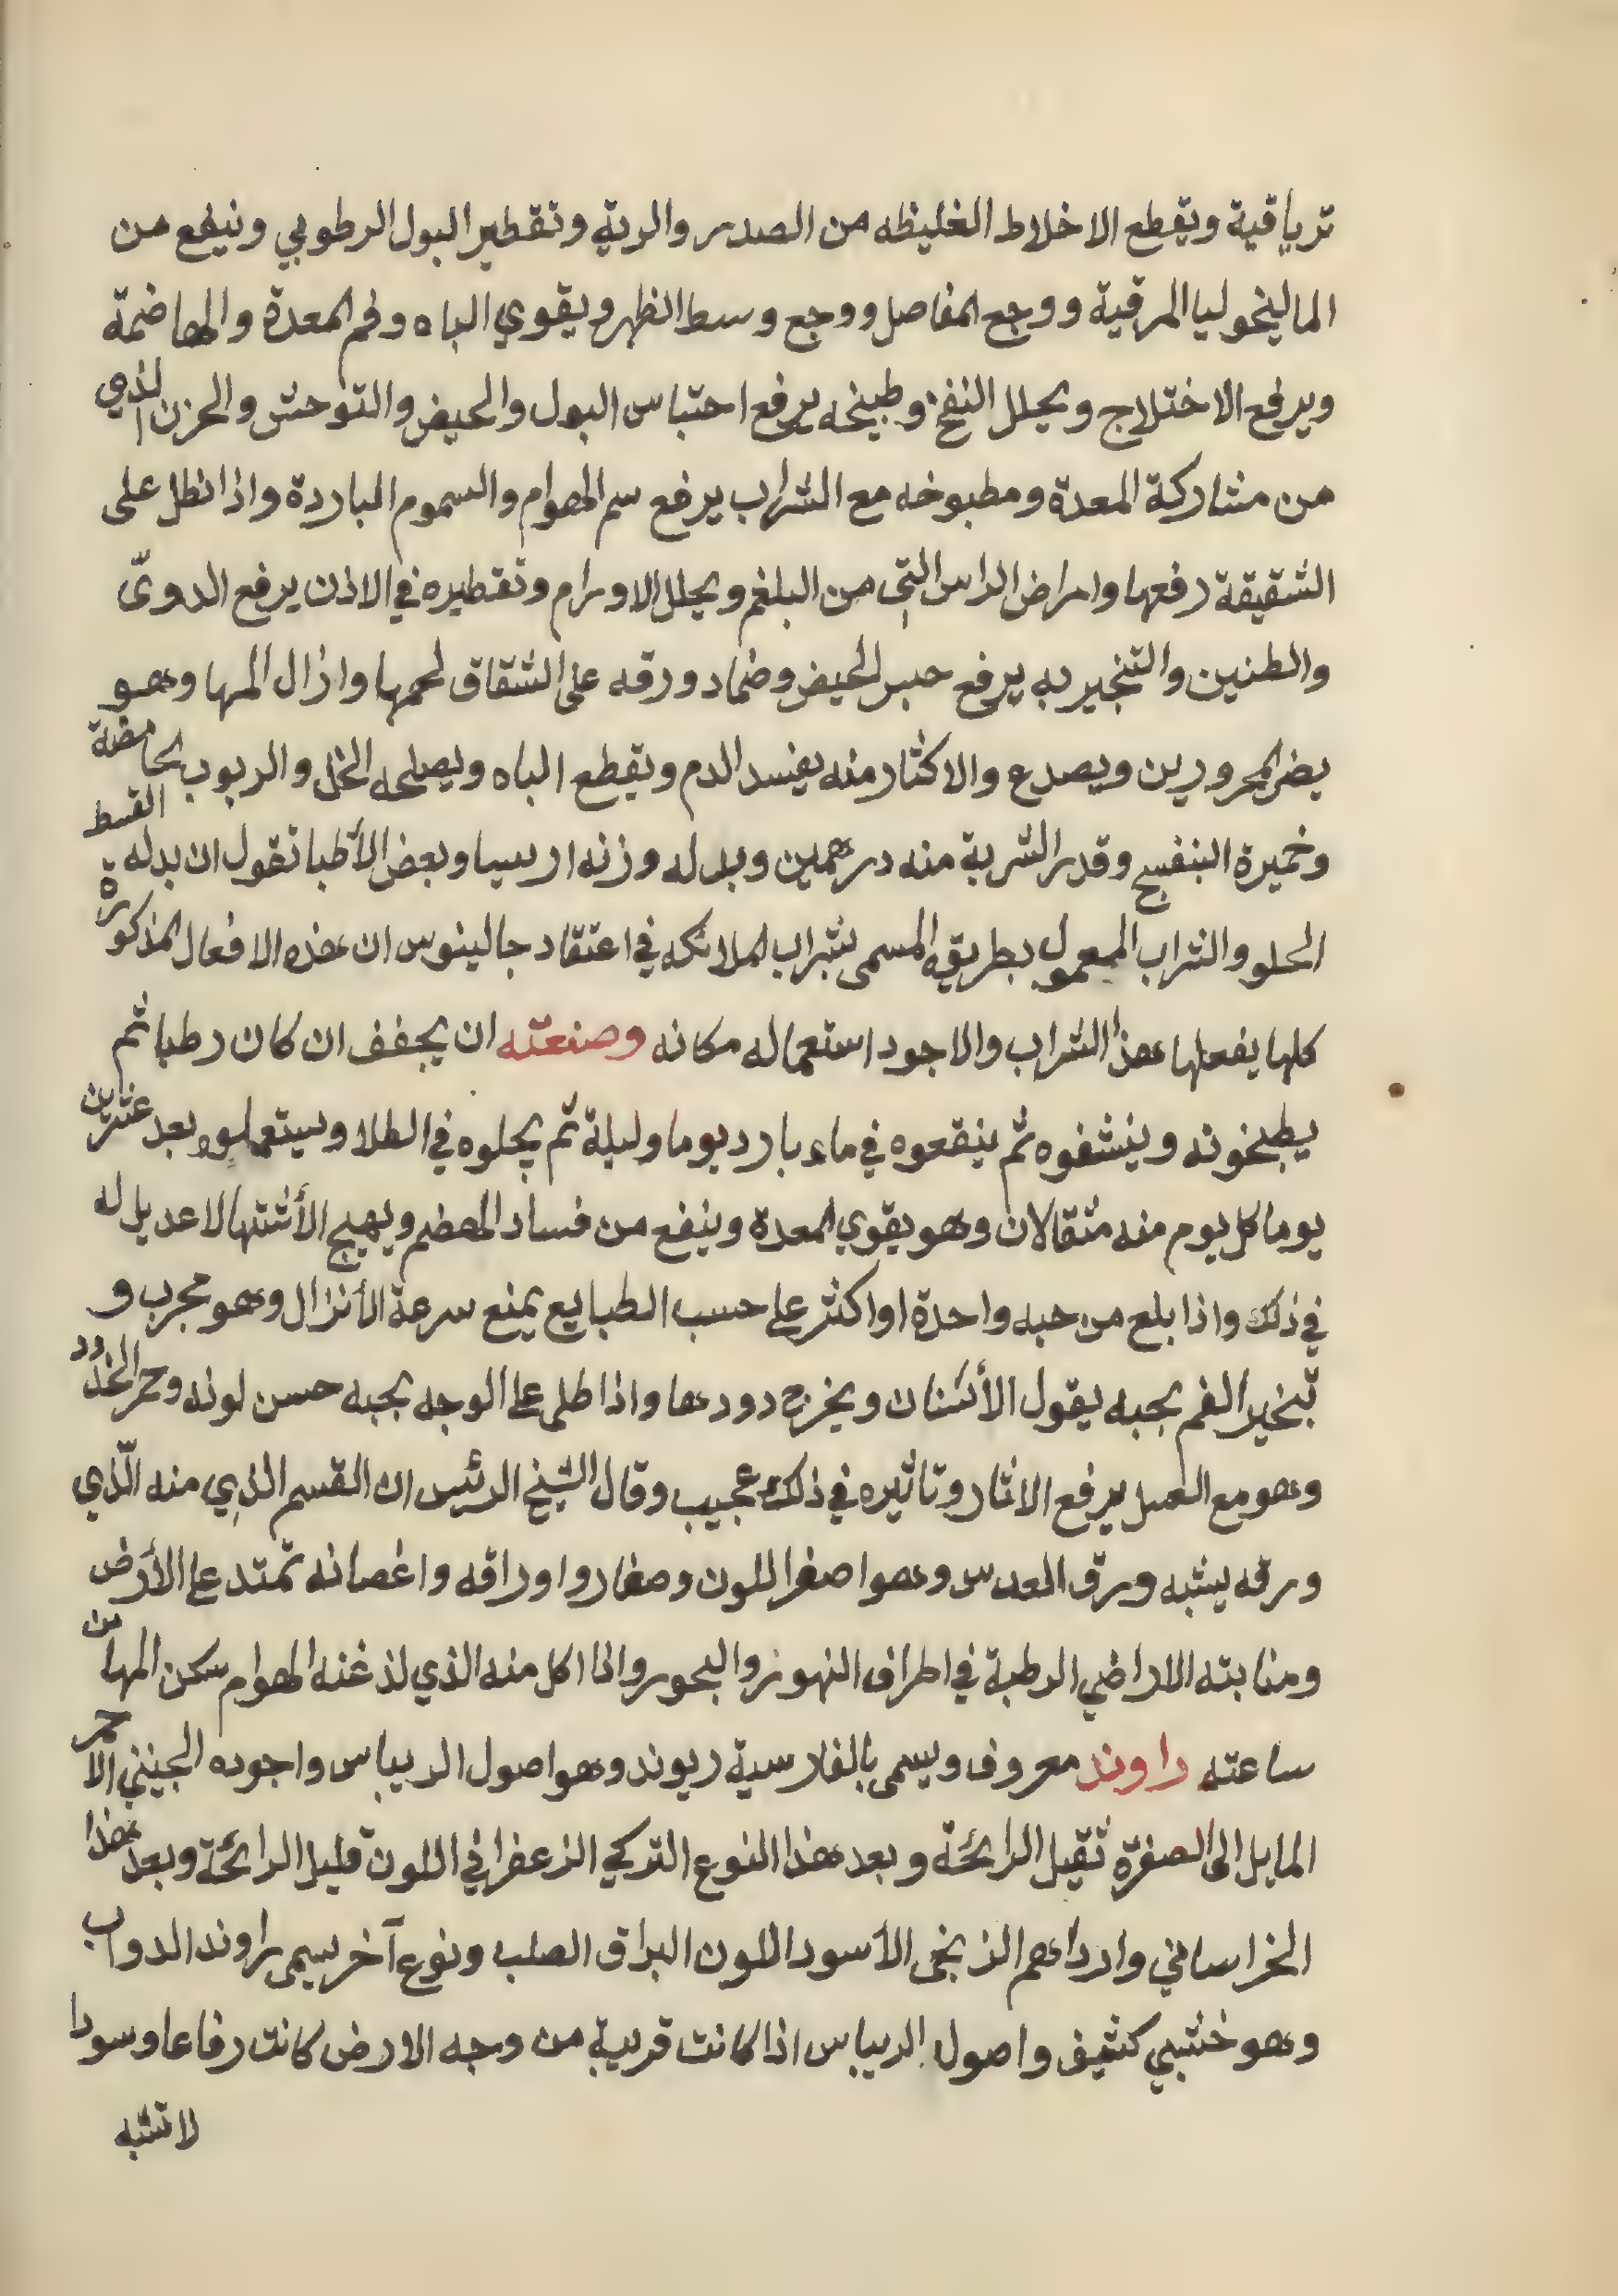 ترياقية ويقطع الاخلاط الغليظه من الصدر والرية وتقطير البول الرطوبي وينفع من
الماليخوليا المرقية ووجع المفاصل ووجع وسط الظهر ويقوي الباه وفم المعدة والهاضمة
ويرفع الاختلاج ويحلل النفخ وطبيخه يرفع احتباس البول والحيض والتوحش والحزن الذي
من مشاركة المعدة ومطبوخه مع الشراب يرفع سم الهوام والسموم الباردة واذا نطل على
الشقيقة رفعها وامراض الراس التي من البلغم ويحلل الاورام وتقطيره في الاذن يرفع الدويّ
والطنين والتبخير به يرفع حبس الحيض وضماد ورقه على الشقاق لحمها وازال المها وهو
يضر المحرورين ويصدع والاكثار منه يفسد الدم ويقطع الباه ويصلحه الخل والربوب الحامضة
وخميرة البنفسج وقدر الشربة منه درهمين وبدله وزنه ارسيا وبعض الأطبا تقول ان بدله القسط
الحلو والشراب المعمول بطريقه المسمى بشراب الملائكه في اعتقاد جالينوس ان هذه الافعال المذكورة
كلها يفعلها هذا الشراب والاجود استعماله مكانه وصنعته ان يجفف ان كان رطبا ثم
يطبخونه وينشفوه ثم ينقعوه في ماء بارد يوما وليلة ثم يجلوه في الطلا ويستعملوه بعد عشرين
يوما كل يوم منه مثقالان وهو يقوي المعدة وينفع من فساد الهضم ويهيج الأشتها لا عديل له
في ذلك واذا بلع من حبه واحدة او اكثر على حسب الطبايع يمنع سرعة الأنزال وهو مجرب و
تبخير الفم بحبه يقول الأسنان ويخرج دودها واذا طلى على الوجه بحبه حسن لونه وحمر الخدود
وهو مع العسل يرفع الاثار وتاثيره في ذلك عجيب وقال الشيخ الرئيس ان القسم الذي منه الّذي
ورقه يشبه ورق العدس وهو اصفر اللون وصغار واوراقه واغصانه تمتد على الأرض
ومنابته الاراضي الرطبة في اطراف النهور والبحور واذا اكل منه الذي لذغنه الهوام سكن المها من
ساعته راوند معروف ويسمى بالفارسية ريوند وهو اصول الريباس واجوده الجيني الاحمر
المايل الى الصفرة ثقيل الرائحة وبعد هذا النوع التركي الزعفراني اللون قليل الرائحة وبعد هذا
الخراساني وارداهم الزنجى الأسود اللون البراق الصلب ونوع آخر يسمى راوند الدواب
وهو خشبي كثيف واصول الريباس اذا كانت قريبة من وجه الارض كانت رفاعا وسودا
لا تشبه